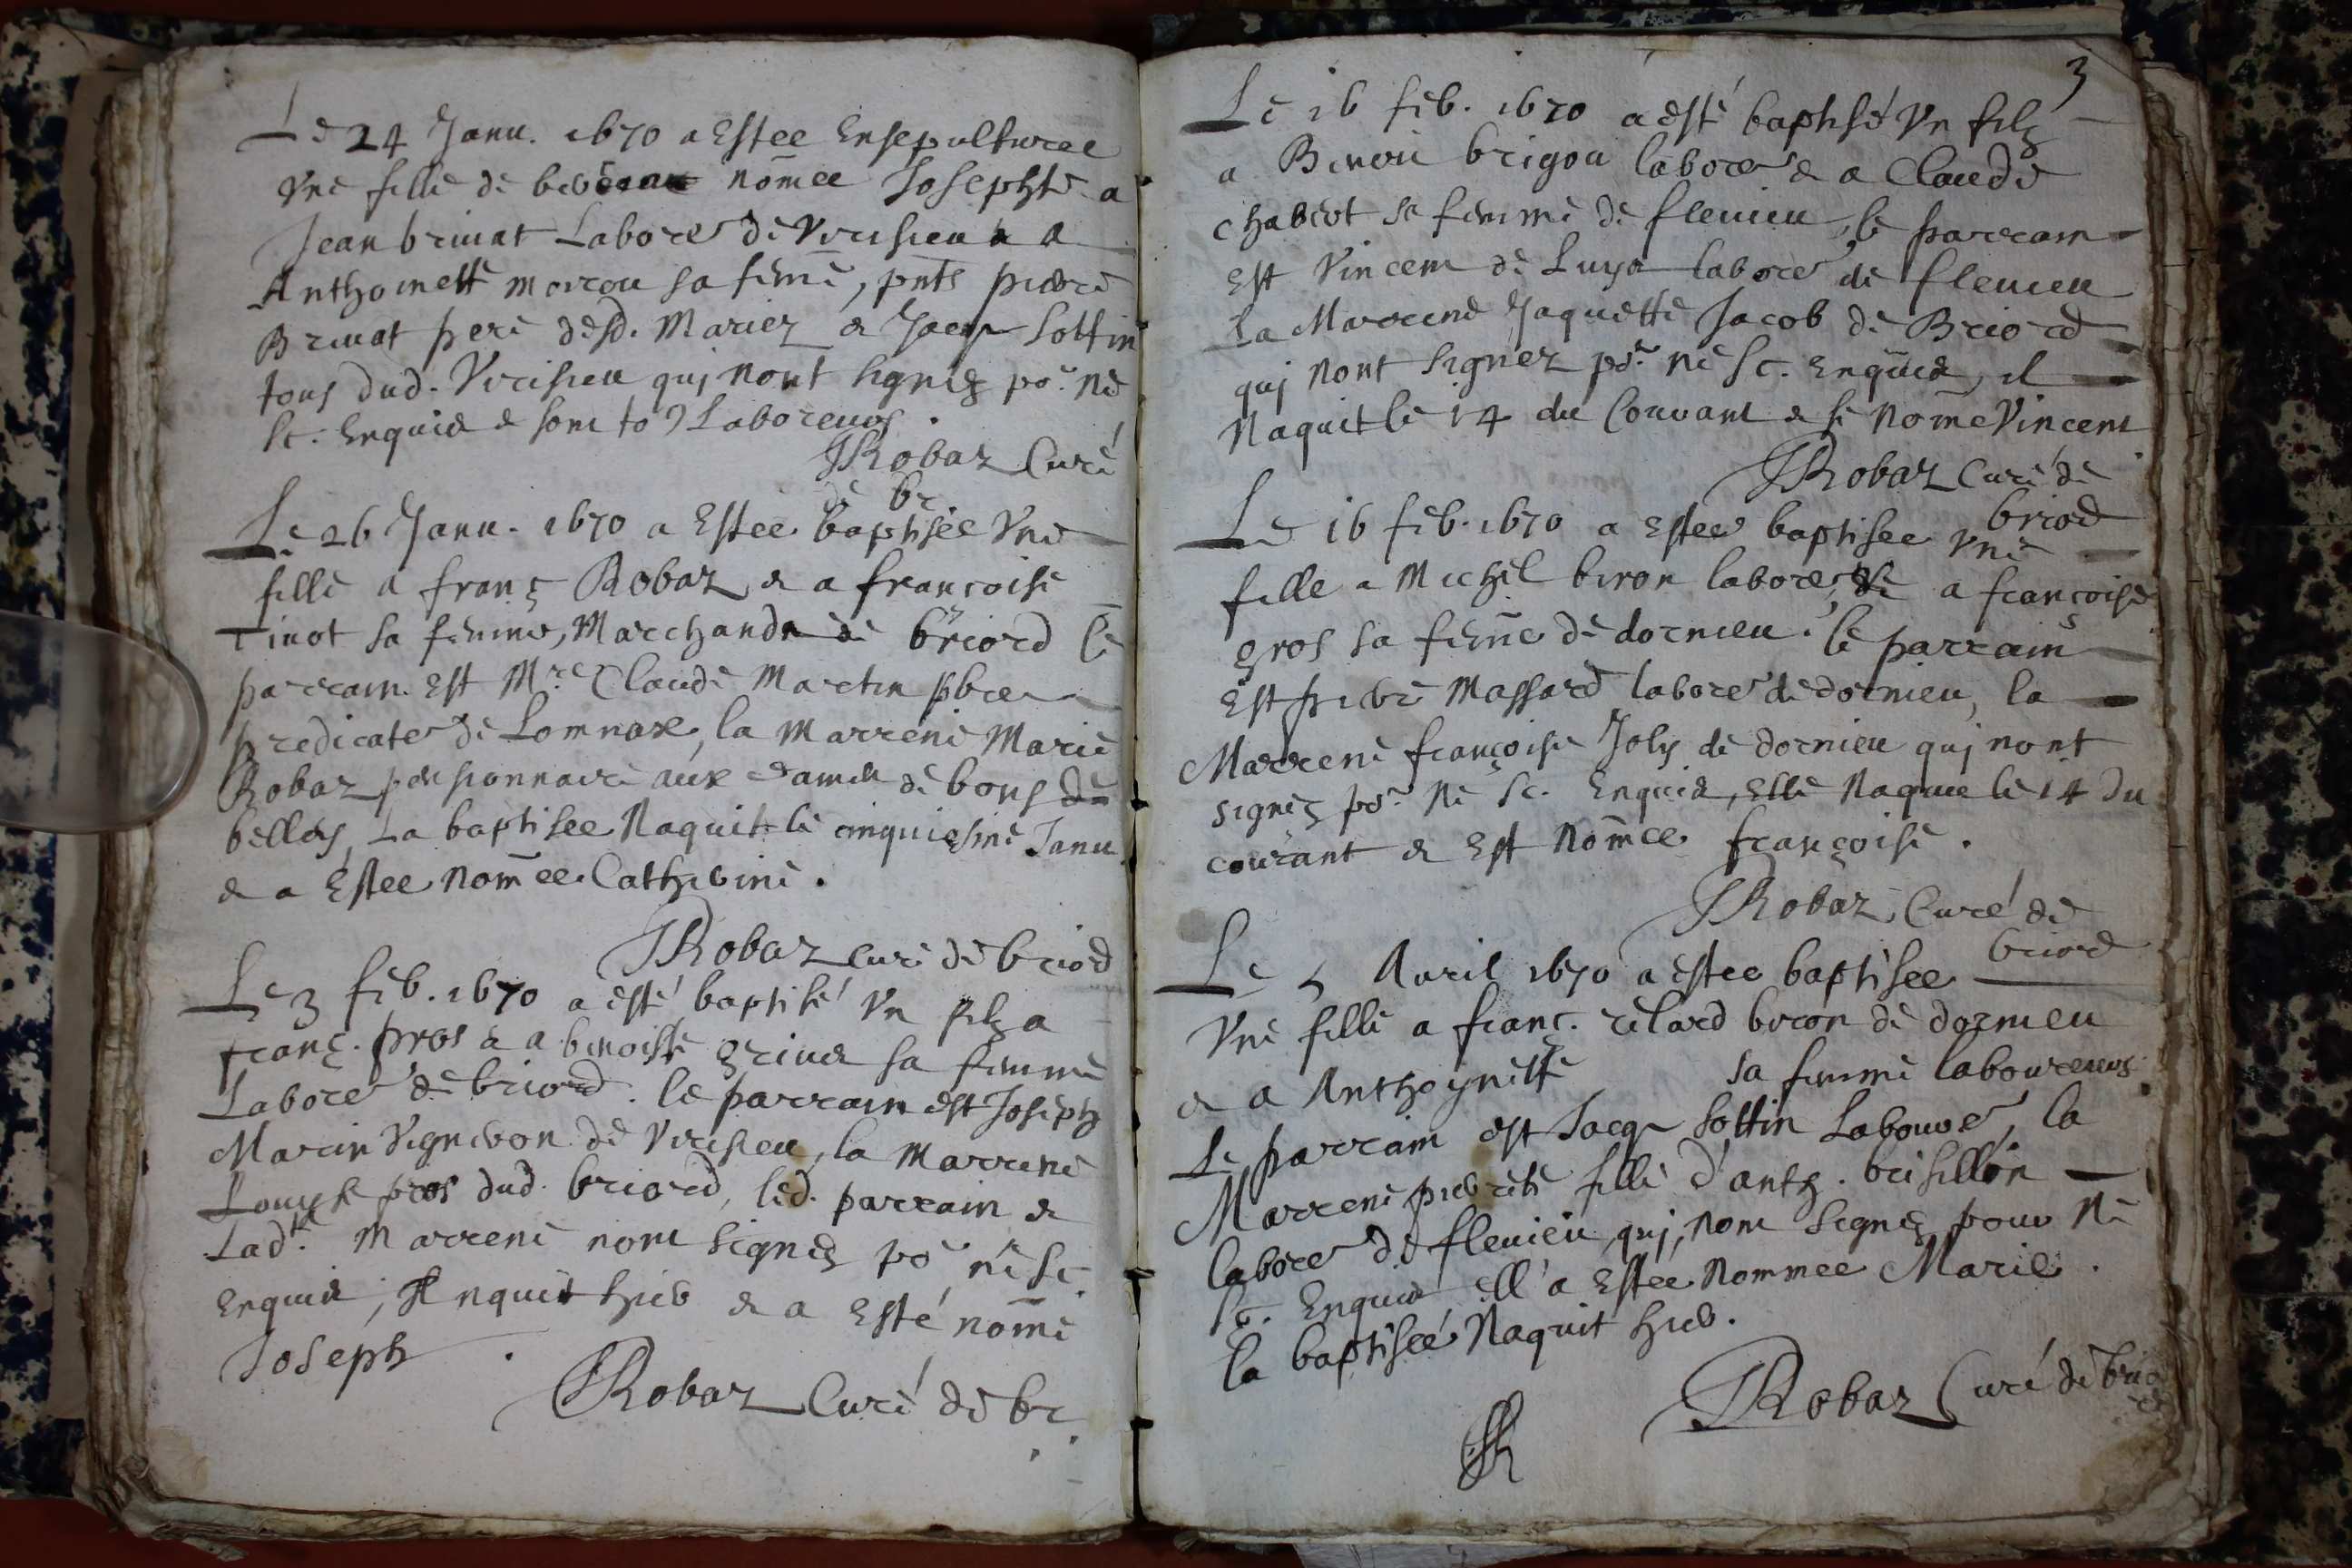 Le 24 Janu. 1670 a Estee Ensepulturee
Vne fille de nōmee Josephte a
Jean brunat Labore^r de Virisieu & a
Anthoinette moirou sa fēme, pnts pierre
Brunat pere desd. Mariez & Jacq sottin
tous dud. Virisieu quj nont signez po^r ne
sc. Enquis & sont to9 Laboreurs.
JRobaz Curé
de br
Le 26 Janu. 1670 a Estee baptisee Vne
fille a franç Robaz & a francoise
Tinot sa femme, Marchands de briord le
parrain est M^re Claude Martin pbre
predicate^r de Lomnaxe, la marrene Marie
Robaz pensionnaire aux dames de bons de
belleys, La baptisee Naquit le cinquiesme Janu
& a Estee nomēe Catherine.
JRobaz curé de briord
Le 3 feb. 1670 a esté baptisé Vn filz a
franç. pros & a benoiste grinet sa femme
Labore^r de briord. le parrain est Joseph
Marin Vigneron de Virisieu, la marrene
Louyse pros dud. briord, led. parrain &
Lad^te marrene nont signez po^r ne sc.
Enquis, Il nquit hier & a esté nōmé
Joseph.
JRobaz Curé de br.
3
Le 16 feb. 1670 a esté baptisé Vn filz
a Benoit brigou labore^r & a Claude
chabert sa femme de fleuieu, le parrain
est Vincent de Luya labore^r de fleuieu
la Marrene Jaquette Jacob de Briord
quj nont signez po^r ne sc. enquis, il
Naquit le 14 du Courant & se nōme Vincent
JRobaz Curé de
briord
Le 16 feb. 1670 a estee baptisee Vne
fille a Michel biron labore^r & a françoise
gros sa fēme de dornieu. le parrain
Est pierre Massard labore^r de dornieu, la
Marrene françoise Joly de dornieu quj nont
signez po^r ne sc. Enquis, elle Naquit le 14 du
courant & est nōmee françoise.
JRobaz Curé de
briord
Le 5 Auril 1670 a estee baptisee
Vne fille a franç. relard biron de dornieu
& a Anthoynette sa femme laboureurs
Le parrain est Jacq sottin Laboure^r, la
Marrene pierrete fille d'anth. brisillon
labore^r de fleuieu, quj, nont signez pour ne
sc. Enquis ell'a Estee Nommee Marie.
la baptisee Naquit hier.
JRobaz Curé de briord